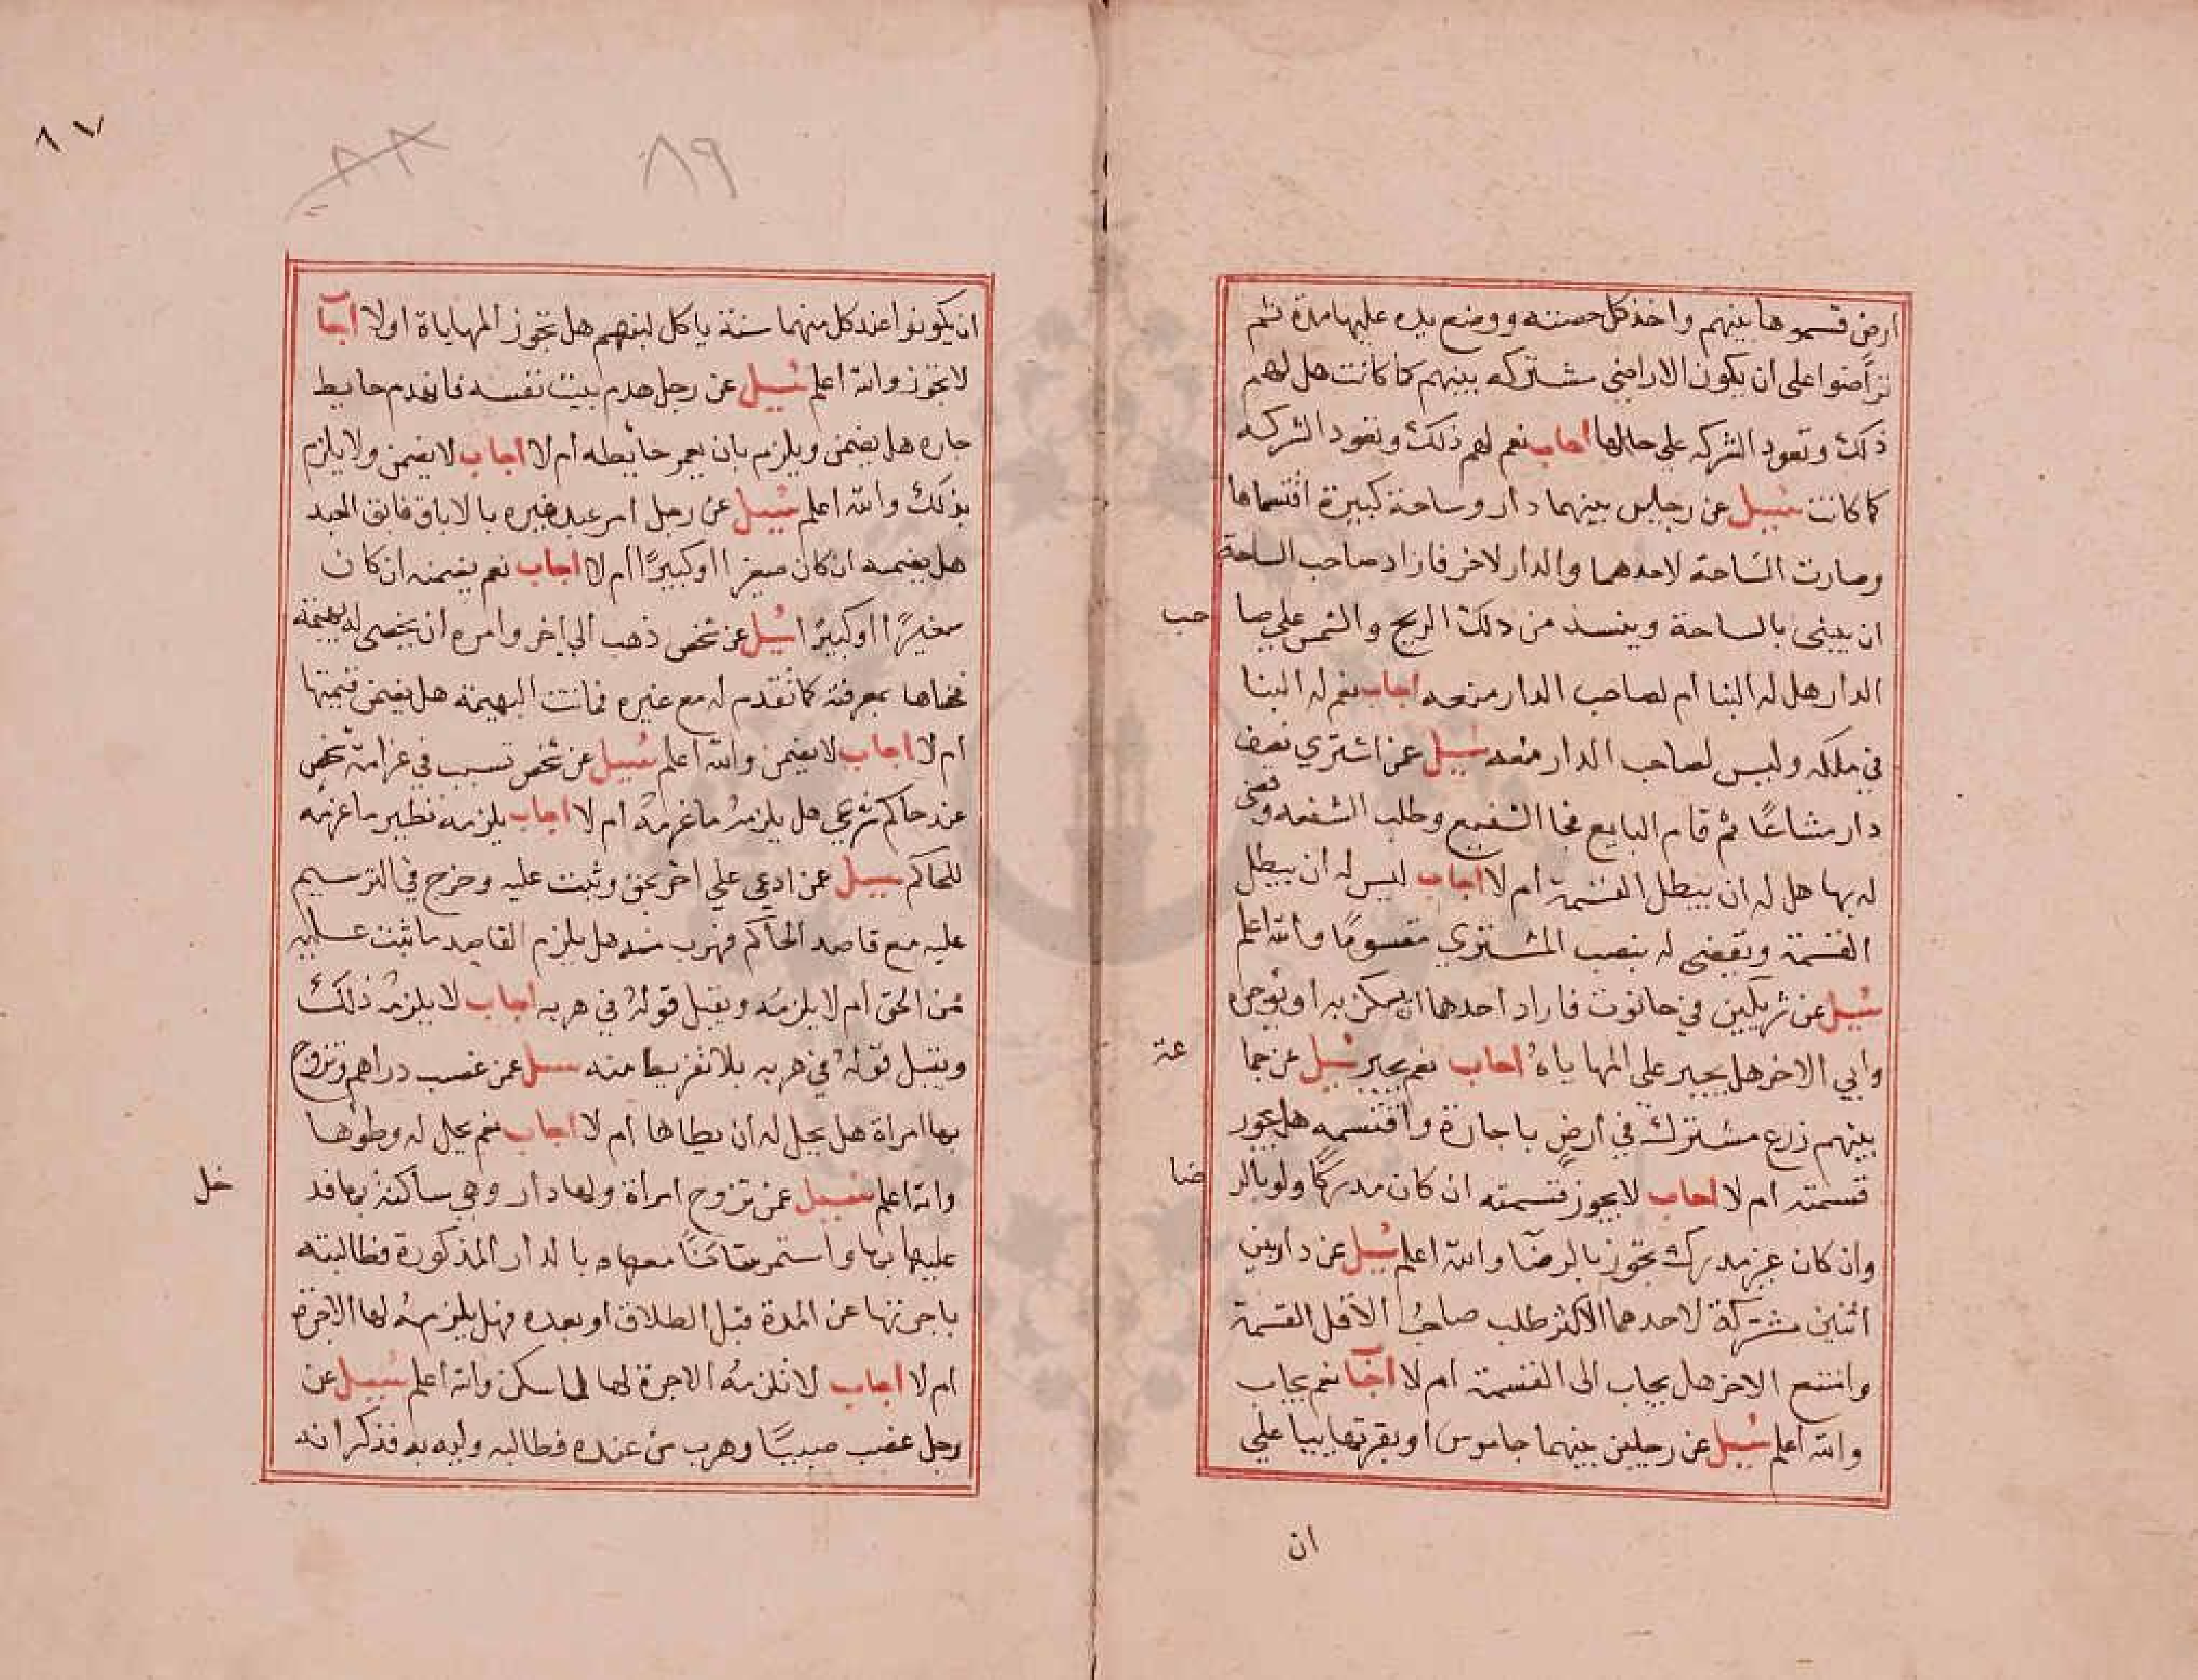 ارض قسموها بينهم واخذ كل حصته ووضع يده عليها مدة ثم
تراضوا على ان يكون الاراضي مشتركه بينهم كما كانت هل لهم
ذلك وتعود الشركه على حالها اجاب نعم لهم ذلك وتعود الشركه
كما كانت سيل عن رجلين بينهما دار وساحة كبيرة اقتسماها
وصارت الساحة لاحدهما والدار لاخر فاراد صاحب الساحة
ان يبنى بالساحة وينسد من ذلك الريح والشمس على صا حب
الدار هل له البنا ام لصاحب الدار منعه اجاب نعم له البنا
في ملكه وليس لصاحب الدار منعه سيل عمن اشتري نصف
دار مشاعًا ثم قام البايع فجا الشفيع وطلب الشفعه وقضى
له بها هل له ان يبطل القسمة ام لا اجاب ليس له ان يبطل
القسمة ويقضى له بنصب المشتري مقسومًا والله اعلم
سيل عن شريكين في حانوت فاراد احدها ان يسكن به او يوجره
وابي الاخر هل يجبر علي المهاياة اجاب نعم يجبر سيل عن جما عة
بينهم زرع مشترك في أرض باجارة واقتسمه هل يجوز
قسمته ام لا اجاب لا يجوز قسمته ان كان مدركًا ولو بالر ضا
وان كان غير مدرك تجوز بالرضا والله اعلم سيل عن دار بين
اثنين مشتركة لاحدهما الاكثر طلب صاحب الاقل القسمة
وامتنع الاخر هل يجاب الى القسمة ام لا اجا نعم يجاب
والله اعلم سيل عن رجلين بينهما جاموس او بقر تهاييا علي
ان
٨٧
٨٩
ان يكونوا عند كل منهما سنة ياكل لبنهم هل تجوز المهاياة اولا اجا
لا تجوز والله اعلم سيل عن رجل هدم بيت نفسه فانهدم حايط
جاره هل يضمن ويلزم بان يعمر حايطه أم لا اجاب لا يضمن ولا يلزم
بذلك والله اعلم سيل عن رجل امر عبد غيره بالاباق فابق العبد
هل يضمنه ان كان صغيرا او كبيرًا ام لا اجاب نعم يضمنه ان كان
صغيرًا او كبيرًا سيل عن شخص ذهب الي اخر وامره ان يخصى له بهيمة
فخصاها بمعرفته كما تقدم له مع غيره فماتت البهيمة هل يضمن قيمتها
ام لا اجاب لا يضمن والله اعلم سيل عن شخص تسبب في غرامة شخص
عند حاكم شرعي هل يلزمه ما غرمه ام لا اجاب يلزمه نظير ما غرمه
للحاكم سيل عمن ادعي علي اخر بحق وثبت عليه وخرج في الترسيم
عليه مع قاصد الحاكم فهرب منه هل يلزم القاصد ما ثبت عليه
من الحق ام لا يلزمه ويقبل قوله في هربه اجاب لا يلزمه ذلك
ويقبل قوله في هربه بلا تفريط منه سيل عمن غصب دراهم وتزوج
بها امراة هل يحل له أن يطاها أم لا اجاب نعم يحل له وطوها
والله اعلم سيل عمن تزوج امراة ولها دار وهي ساكنة بها فد خل
عليها بها واستمر ساكنًا معها بالدار المذكورة فطالبته
باجرتها عن المدة قبل الطلاق او بعده فهل يلزمه لها الاجرة
ام لا اجاب لا تلزمه الاجرة لها لما سكن والله اعلم سيل عن
رجل غصب صبيًا وهرب من عنده فطالبه وليه به فذكر انه